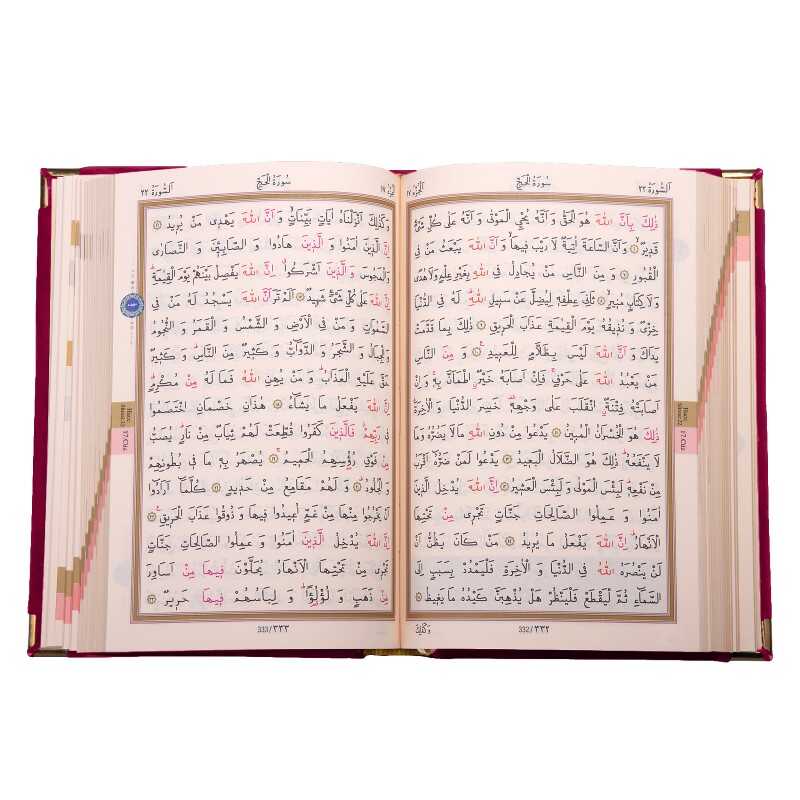 اَلْجُزْءُ ١٧ سُورَةُ الْحَجِّ اَلسُّورَةُ ٢٢
ذٰلِكَ بِاَنَّ اللّٰهَ هُوَ الْحَقُّ وَ اَنَّهُ يُحْيِ الْمَوْتٰى وَ اَنَّهُ عَلٰى كُلِّ شَيْءٍ
قَدِيرٌ ﴿٦﴾ وَاَنَّ السَّاعَةَ اٰتِيَةٌ لَا رَيْبَ فِيهَا وَ اَنَّ اللّٰهَ يَبْعَثُ مَنْ فِى
الْقُبُورِ ﴿٧﴾ وَ مِنَ النَّاسِ مَنْ يُجَادِلُ فِى اللّٰهِ بِغَيْرِ عِلْمٍ وَلَا هُدًى
وَلَا كِتَابٍ مُنِيرٍ ﴿٨﴾ ثَانِىَ عِطْفِهِ لِيُضِلَّ عَنْ سَبِيلِ اللّٰهِ لَهُ فِى الدُّنْيَا
خِزْىٌ وَ نُذِيقُهُ يَوْمَ الْقِيٰمَةِ عَذَابَ الْحَرِيقِ ﴿٩﴾ ذٰلِكَ بِمَا قَدَّمَتْ
يَدَاكَ وَ اَنَّ اللّٰهَ لَيْسَ بِظَلَّامٍ لِلْعَبِيدِ ﴿١٠﴾ وَ مِنَ النَّاسِ
مَنْ يَعْبُدُ اللّٰهَ عَلٰى حَرْفٍ فَاِنْ اَصَابَهُ خَيْرٌ اطْمَاَنَّ بِهِ وَ اِنْ
اَصَابَتْهُ فِتْنَةٌ انْقَلَبَ عَلٰى وَجْهِهِ خَسِرَ الدُّنْيَا وَ الْاٰخِرَةَ
ذٰلِكَ هُوَ الْخُسْرَانُ الْمُبِينُ ﴿١١﴾ يَدْعُوا مِنْ دُونِ اللّٰهِ مَا لَا يَضُرُّهُ وَمَا
لَا يَنْفَعُهُ ذٰلِكَ هُوَ الضَّلَالُ الْبَعِيدُ ﴿١٢﴾ يَدْعُوا لَمَنْ ضَرُّهُ اَقْرَبُ
مِنْ نَفْعِهِ لَبِئْسَ الْمَوْلٰى وَ لَبِئْسَ الْعَشِيرُ ﴿١٣﴾ اِنَّ اللّٰهَ يُدْخِلُ الَّذِينَ
اٰمَنُوا وَ عَمِلُوا الصَّالِحَاتِ جَنَّاتٍ تَجْرِى مِنْ تَحْتِهَا
الْاَنْهَارُ اِنَّ اللّٰهَ يَفْعَلُ مَا يُرِيدُ ﴿١٤﴾ مَنْ كَانَ يَظُنُّ اَنْ
لَنْ يَنْصُرَهُ اللّٰهُ فِى الدُّنْيَا وَ الْاٰخِرَةِ فَلْيَمْدُدْ بِسَبَبٍ اِلَى
السَّمَاءِ ثُمَّ لْيَقْطَعْ فَلْيَنْظُرْ هَلْ يُذْهِبَنَّ كَيْدُهُ مَا يَغِيظُ ﴿١٥﴾
332/٣٣٢
وَكَذٰلِكَ
سُورَةُ الْحَجِّ اَلسُّورَةُ ٢٢
وَكَذٰلِكَ اَنْزَلْنَاهُ اٰيَاتٍ بَيِّنَاتٍ وَ اَنَّ اللّٰهَ يَهْدِى مَنْ يُرِيدُ ﴿١٦﴾
اِنَّ الَّذِينَ اٰمَنُوا وَ الَّذِينَ هَادُوا وَ الصَّابِئِينَ وَ النَّصَارٰى
وَالْمَجُوسَ وَالَّذِينَ اَشْرَكُوا اِنَّ اللّٰهَ يَفْصِلُ بَيْنَهُمْ يَوْمَ الْقِيٰمَةِ
اِنَّ اللّٰهَ عَلٰى كُلِّ شَيْءٍ شَهِيدٌ ﴿١٧﴾ اَلَمْ تَرَ اَنَّ اللّٰهَ يَسْجُدُ لَهُ مَنْ فِى
السَّمٰوَاتِ وَ مَنْ فِى الْاَرْضِ وَ الشَّمْسُ وَ الْقَمَرُ وَ النُّجُومُ
وَالْجِبَالُ وَ الشَّجَرُ وَ الدَّوَابُّ وَ كَثِيرٌ مِنَ النَّاسِ وَ كَثِيرٌ
حَقَّ عَلَيْهِ الْعَذَابُ وَ مَنْ يُهِنِ اللّٰهُ فَمَا لَهُ مِنْ مُكْرِمٍ
اِنَّ اللّٰهَ يَفْعَلُ مَا يَشَاءُ ﴿١٨﴾ هٰذَانِ خَصْمَانِ اخْتَصَمُوا
فِى رَبِّهِمْ فَالَّذِينَ كَفَرُوا قُطِّعَتْ لَهُمْ ثِيَابٌ مِنْ نَارٍ يُصَبُّ
مِنْ فَوْقِ رُؤُسِهِمُ الْحَمِيمُ ﴿١٩﴾ يُصْهَرُ بِهِ مَا فِى بُطُونِهِمْ
وَالْجُلُودُ ﴿٢٠﴾ وَ لَهُمْ مَقَامِعُ مِنْ حَدِيدٍ ﴿٢١﴾ كُلَّمَا اَرَادُوا
اَنْ يَخْرُجُوا مِنْهَا مِنْ غَمٍّ اُعِيدُوا فِيهَا وَ ذُوقُوا عَذَابَ الْحَرِيقِ ﴿٢٢﴾
اِنَّ اللّٰهَ يُدْخِلُ الَّذِينَ اٰمَنُوا وَ عَمِلُوا الصَّالِحَاتِ جَنَّاتٍ
تَجْرِى مِنْ تَحْتِهَا الْاَنْهَارُ يُحَلَّوْنَ فِيهَا مِنْ اَسَاوِرَ
مِنْ ذَهَبٍ وَ لُؤْلُؤًا وَ لِبَاسُهُمْ فِيهَا حَرِيرٌ ﴿٢٣﴾
333/٣٣٣